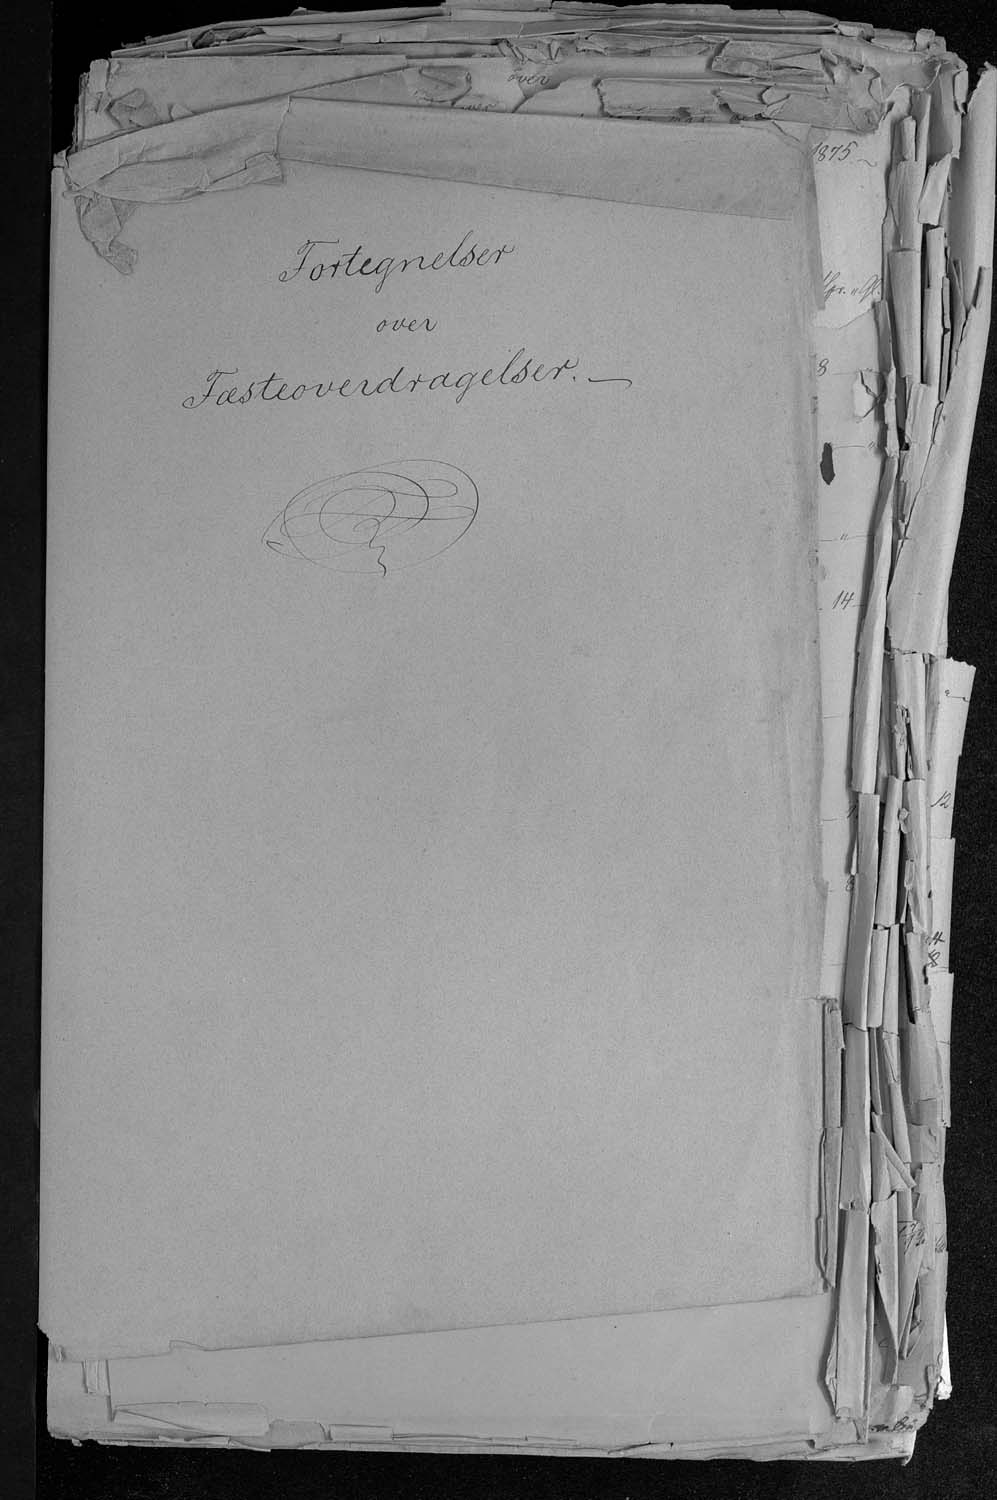 over
1875.
Fortegnelser
over
Fæsteoverdragelser.
8
14
12
8